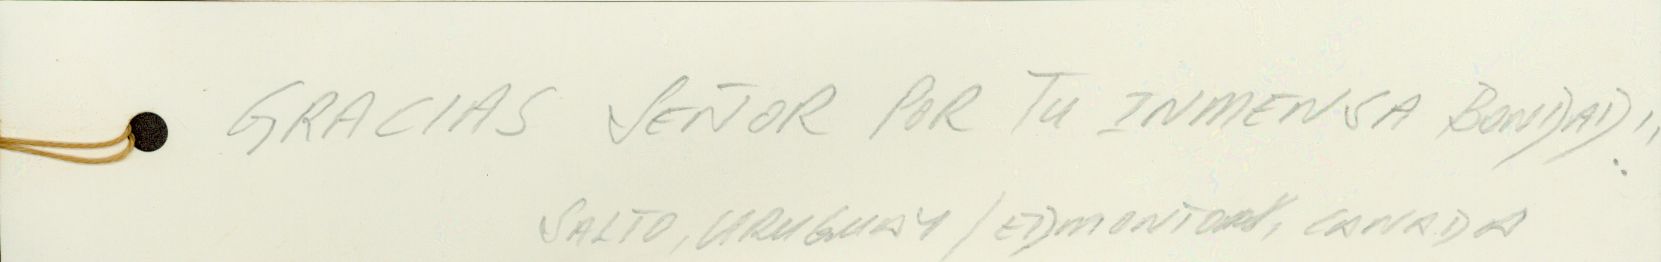 GRACIAS SEÑOR POR TU INMENSA BONDAD!!
SALTO, URUGUAY / EDMONTON, CANADA